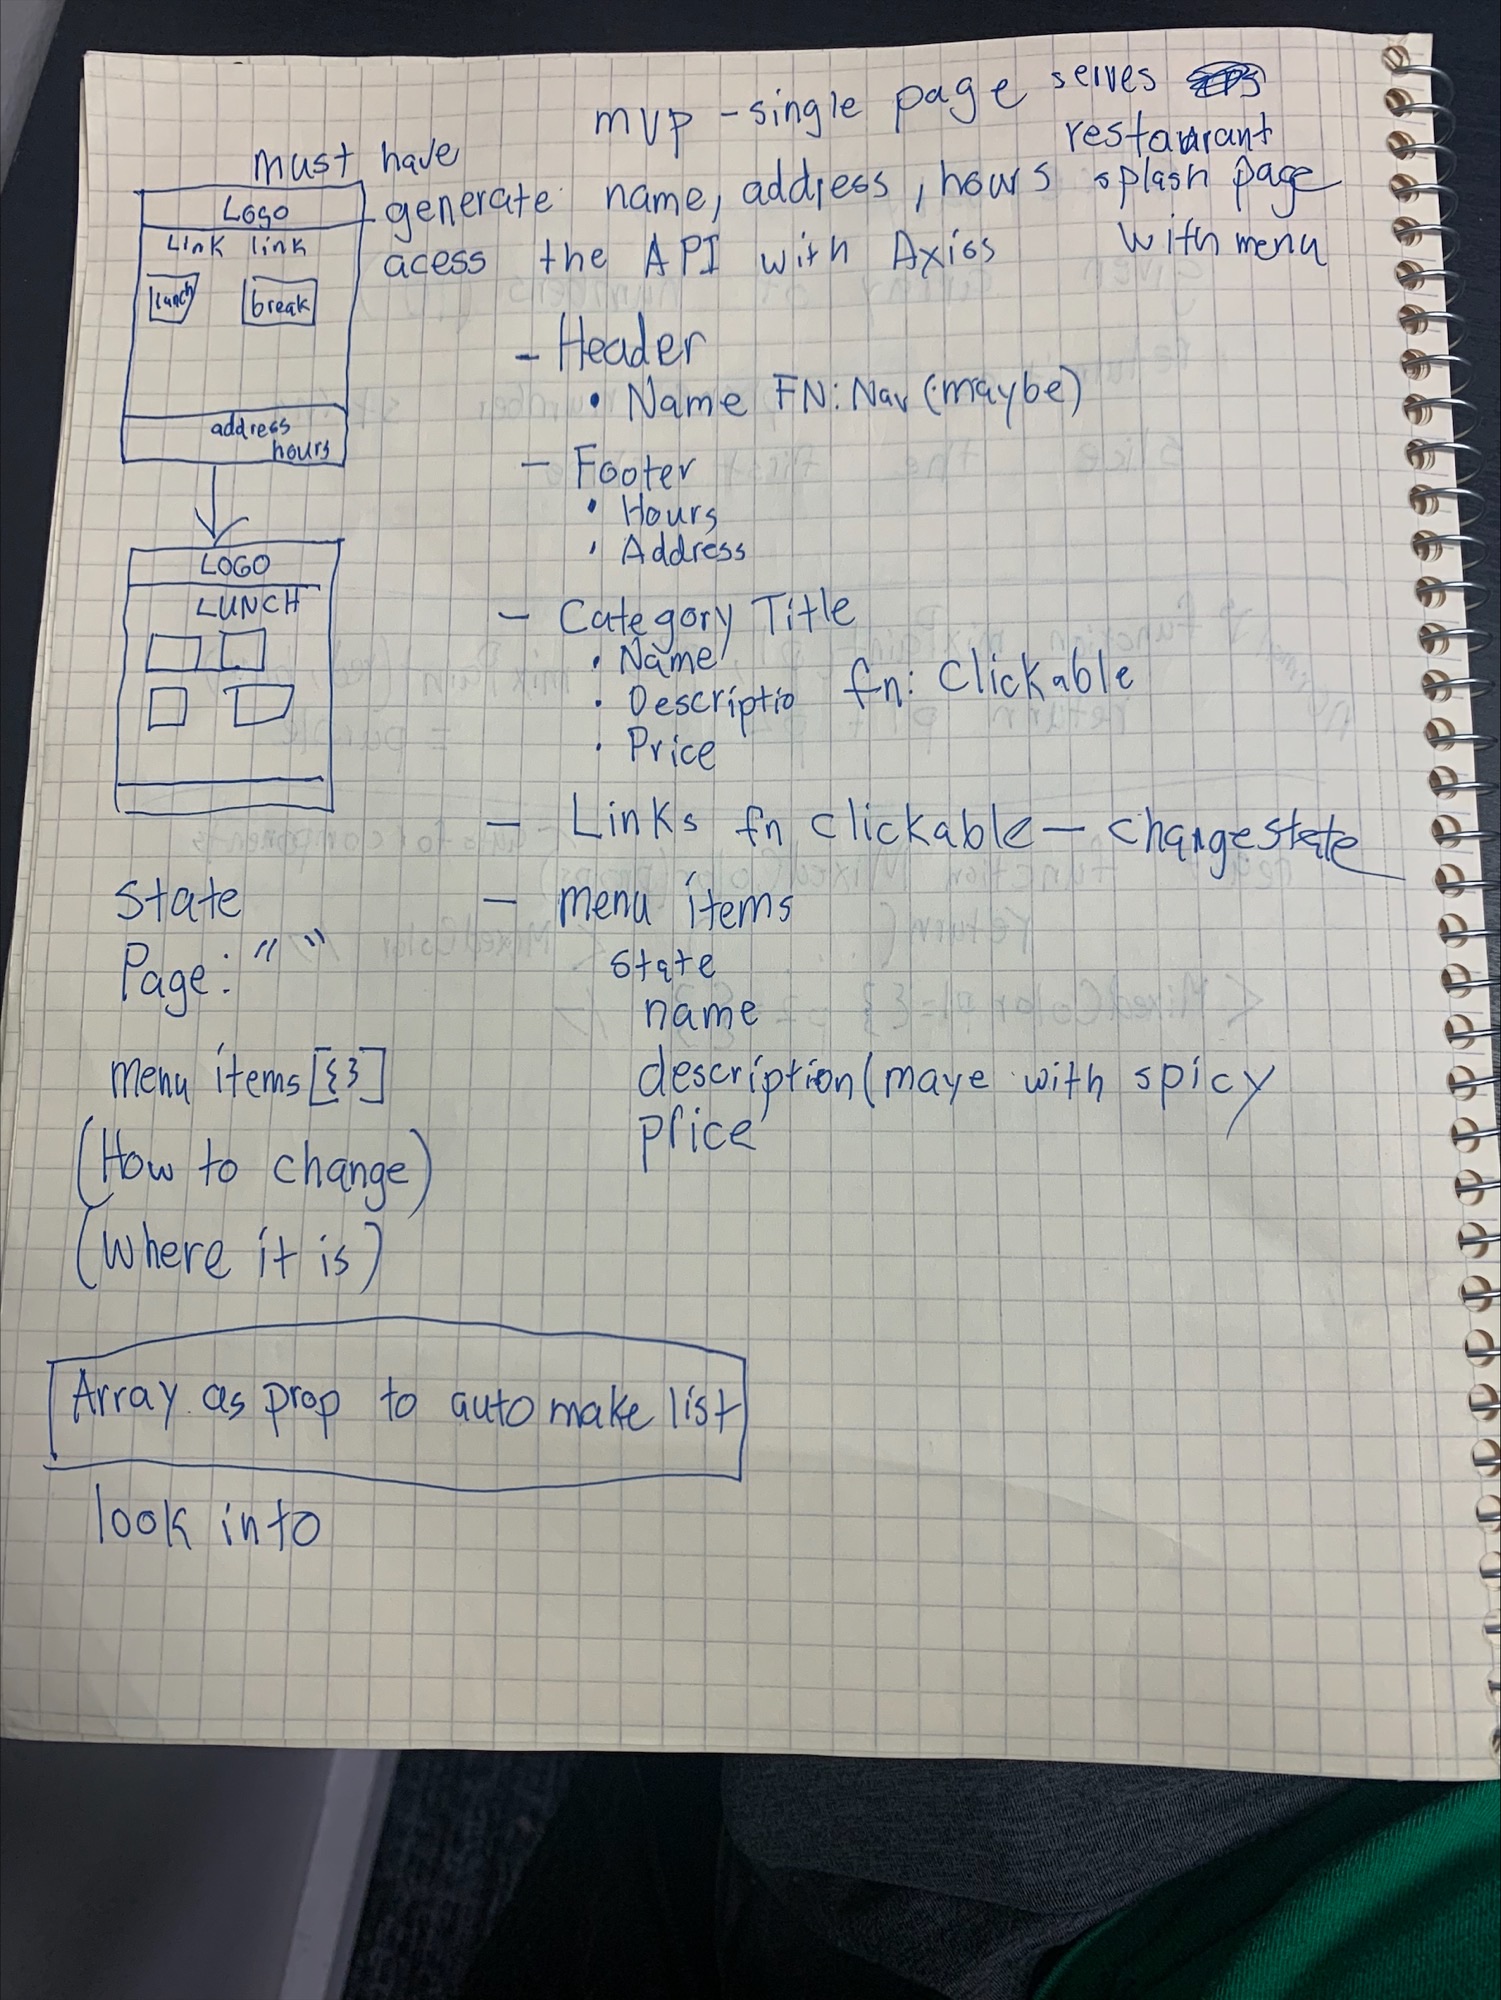 mvp - single page serves
restaurant
splash page
with menu
must have
generate name, address, hours
acess the API with Axios
Logo
Link link
lunch break
address
hours
LOGO
LUNCH
- Header
• Name FN: Nav (maybe)
- Footer
• Hours
• Address
- Category Title
• Name
• Descriptio fn: Clickable
• Price
- Links fn clickable - change state
- menu items
state
name
description (maye with spicy
price
State
Page: " "
menu items [{}]
(How to change)
(Where it is)
Array as prop to auto make list
look into